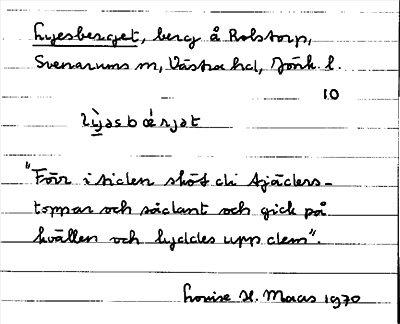 Lyesberget, berg å Rolstorp,
Svenarums sn, Västra hd, Jönk. l.
10
lỳəsbæ̀rjət
"Förr i tiden sköt di tjäders-
toppar och sådant och gick på
kvällen och lyddes upp dem".
Louise H. Maas 1970